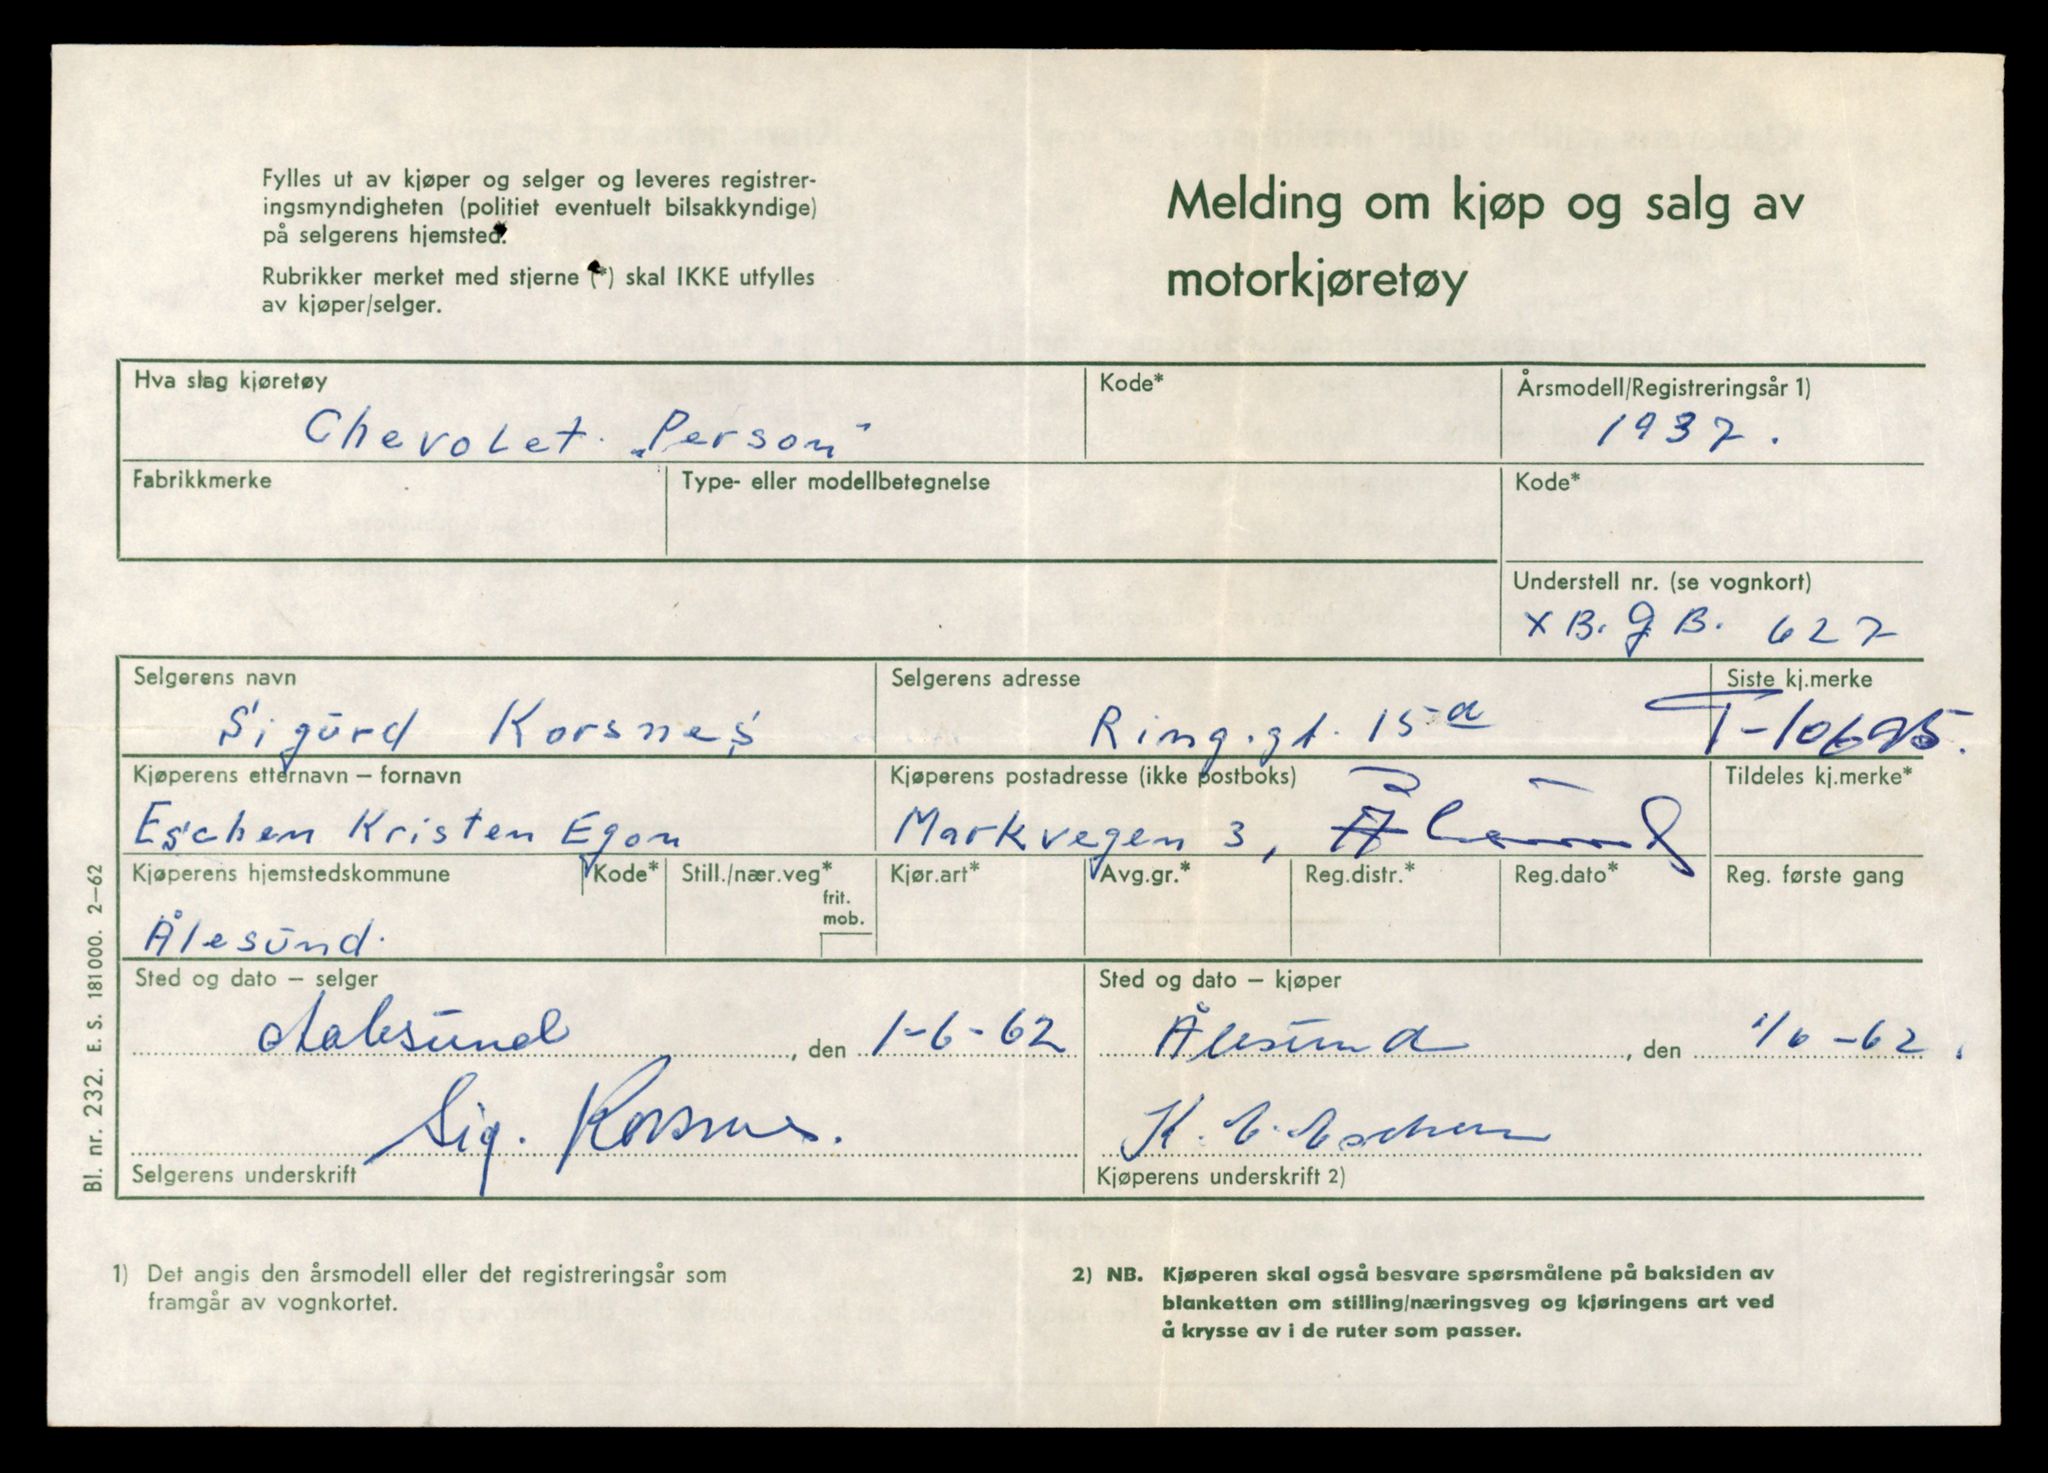 Fylles ut av kjøper og selger og leveres registrer-
ingsmyndigheten (politiet eventuelt bilsakkyndige)
på selgerens hjemsted.
Rubrikker merket med stjerne (*) skal IKKE utfylles
av kjøper/selger.
Melding om kjøp og salg av
motorkjøretøy
Hva slag kjøretøy
Chevolet. „Person"
Kode*
Årsmodell/Registreringsår 1)
1937.
Fabrikkmerke
Type- eller modellbetegnelse
Kode*
Understell nr. (se vognkort)
XB. G B. 627
Selgerens navn
Sigurd Korsnes
Selgerens adresse
Ring.gt. 15a
Siste kj.merke
T-10695.
Kjøperens etternavn – fornavn
Eschen Kristen Egon
Kjøperens postadresse (ikke postboks)
Markvegen 3, Ålesund
Tildeles kj.merke*
Kjøperens hjemstedskommune
Ålesund.
Kode*
Still./nær.veg*
frit.
mob.
Kjør.art*
Avg.gr.*
Reg.distr.*
Reg.dato*
Reg. første gang
Sted og dato – selger
Aalesund, den 1-6-62
Sted og dato – kjøper
Ålesund, den 1/6-62.
Sig. Korsnes.
Selgerens underskrift
K. E. Eschen
Kjøperens underskrift 2)
Bl. nr. 232. E. S. 181000. 2–62
1) Det angis den årsmodell eller det registreringsår som
framgår av vognkortet.
2) NB. Kjøperen skal også besvare spørsmålene på baksiden av
blanketten om stilling/næringsveg og kjøringens art ved
å krysse av i de ruter som passer.